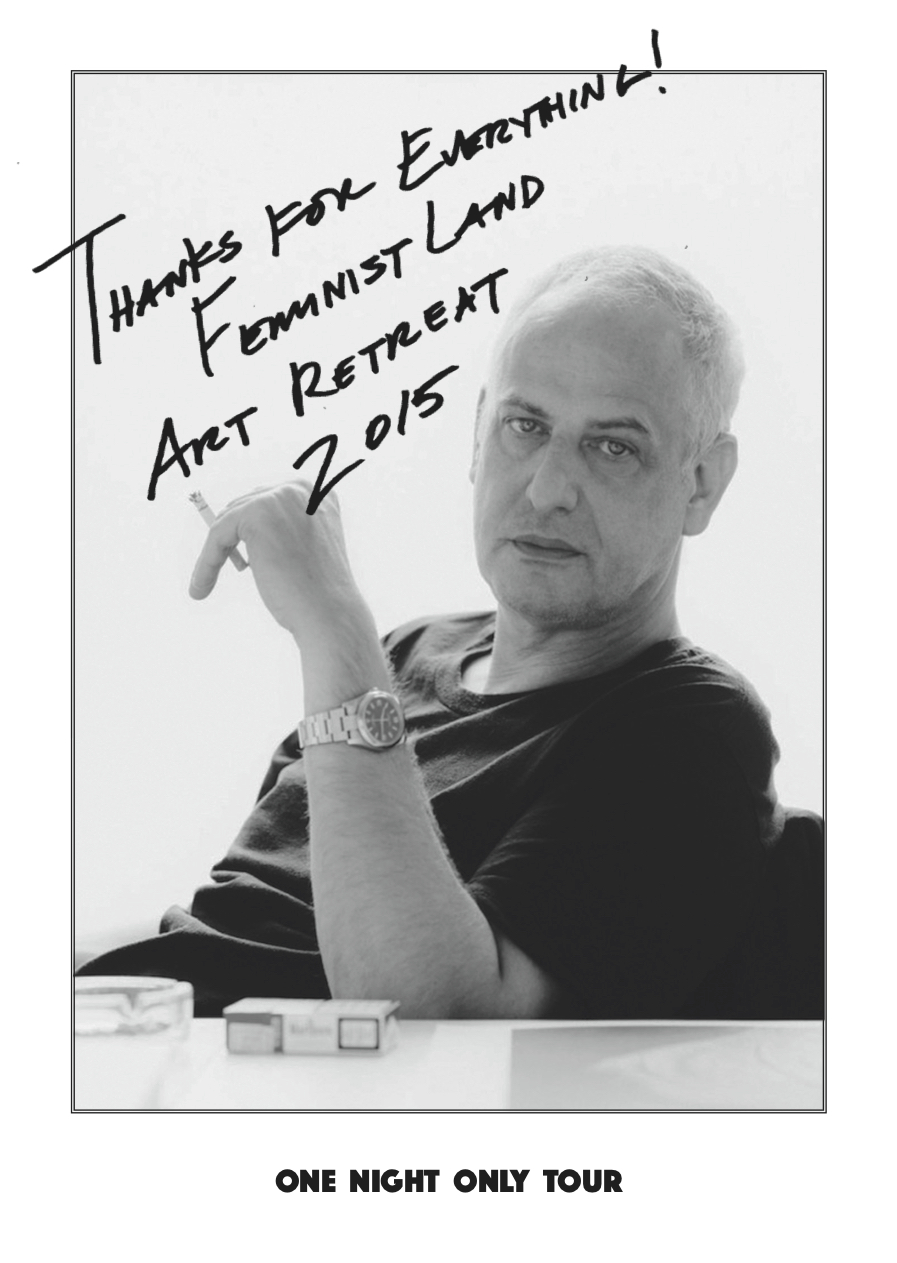 THANKS FOR EVERYTHING!
FEMINIST LAND
ART RETREAT
2015
ONE NIGHT ONLY TOUR